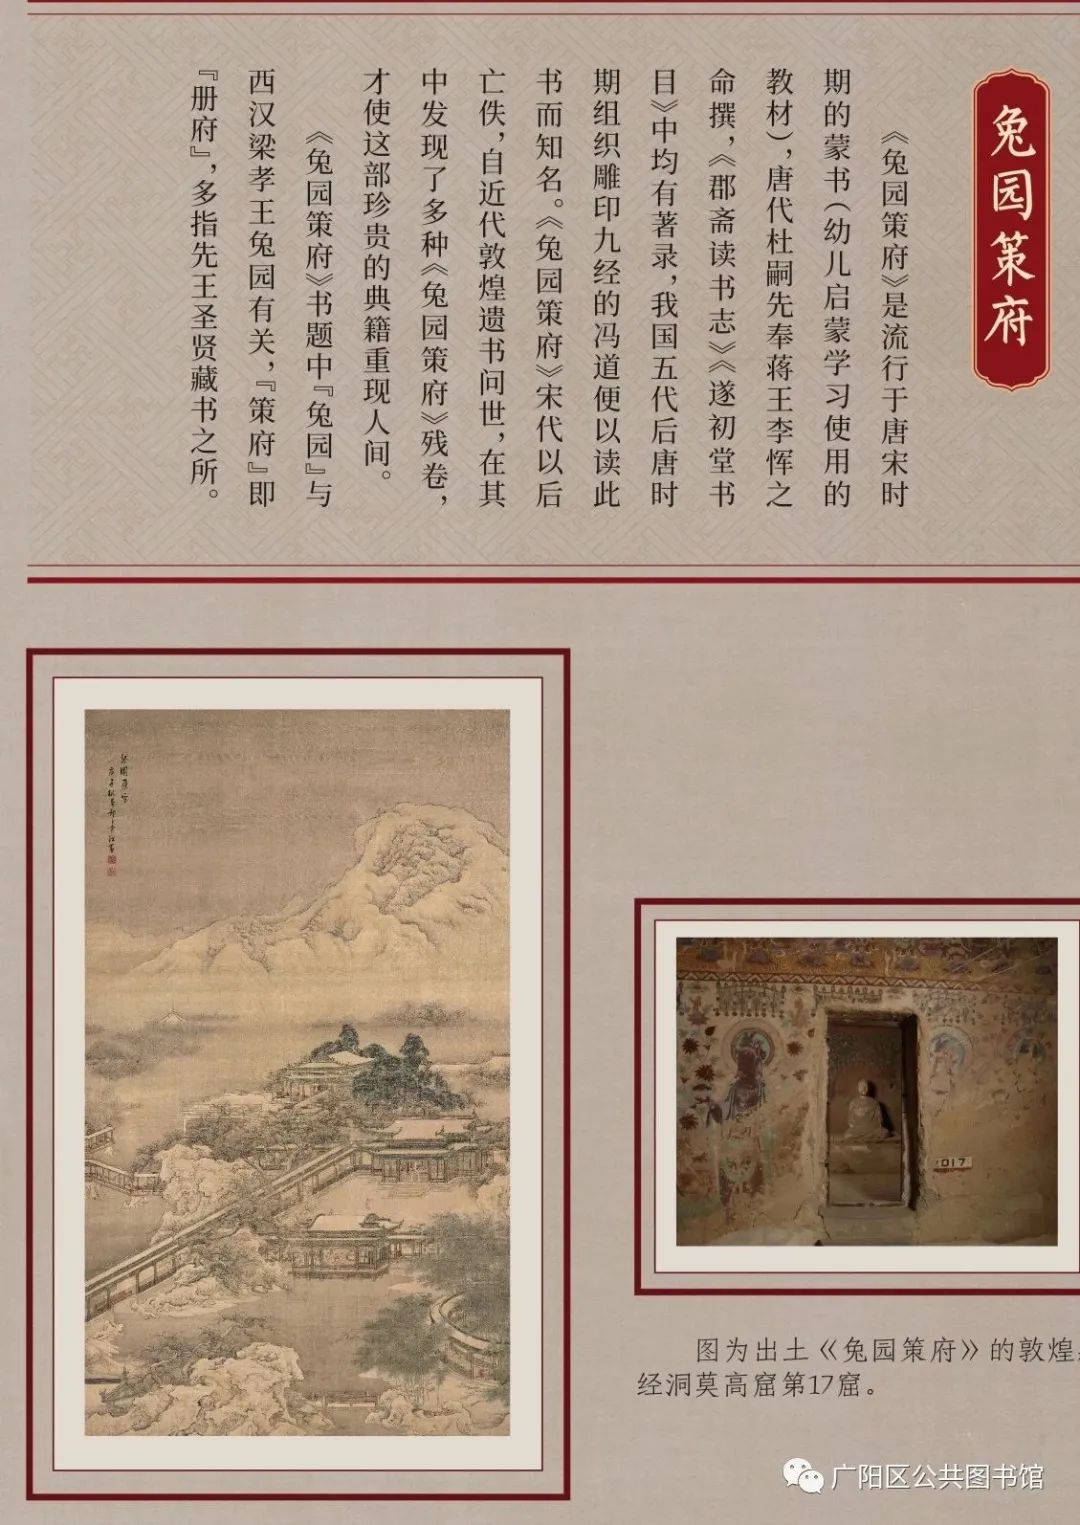 兔园策府
《兔园策府》是流行于唐宋时
期的蒙书（幼儿启蒙学习使用的
教材），唐代杜嗣先奉蒋王李恽之
命撰，《郡斋读书志》《遂初堂书
目》中均有著录，我国五代后唐时
期组织雕印九经的冯道便以读此
书而知名。《兔园策府》宋代以后
亡佚，自近代敦煌遗书问世，在其
中发现了多种《兔园策府》残卷，
才使这部珍贵的典籍重现人间。
《兔园策府》书题中『兔园』与
西汉梁孝王兔园有关，『策府』即
『册府』，多指先王圣贤藏书之所。
017
图为出土《兔园策府》的敦煌
经洞莫高窟第17窟。
广阳区公共图书馆